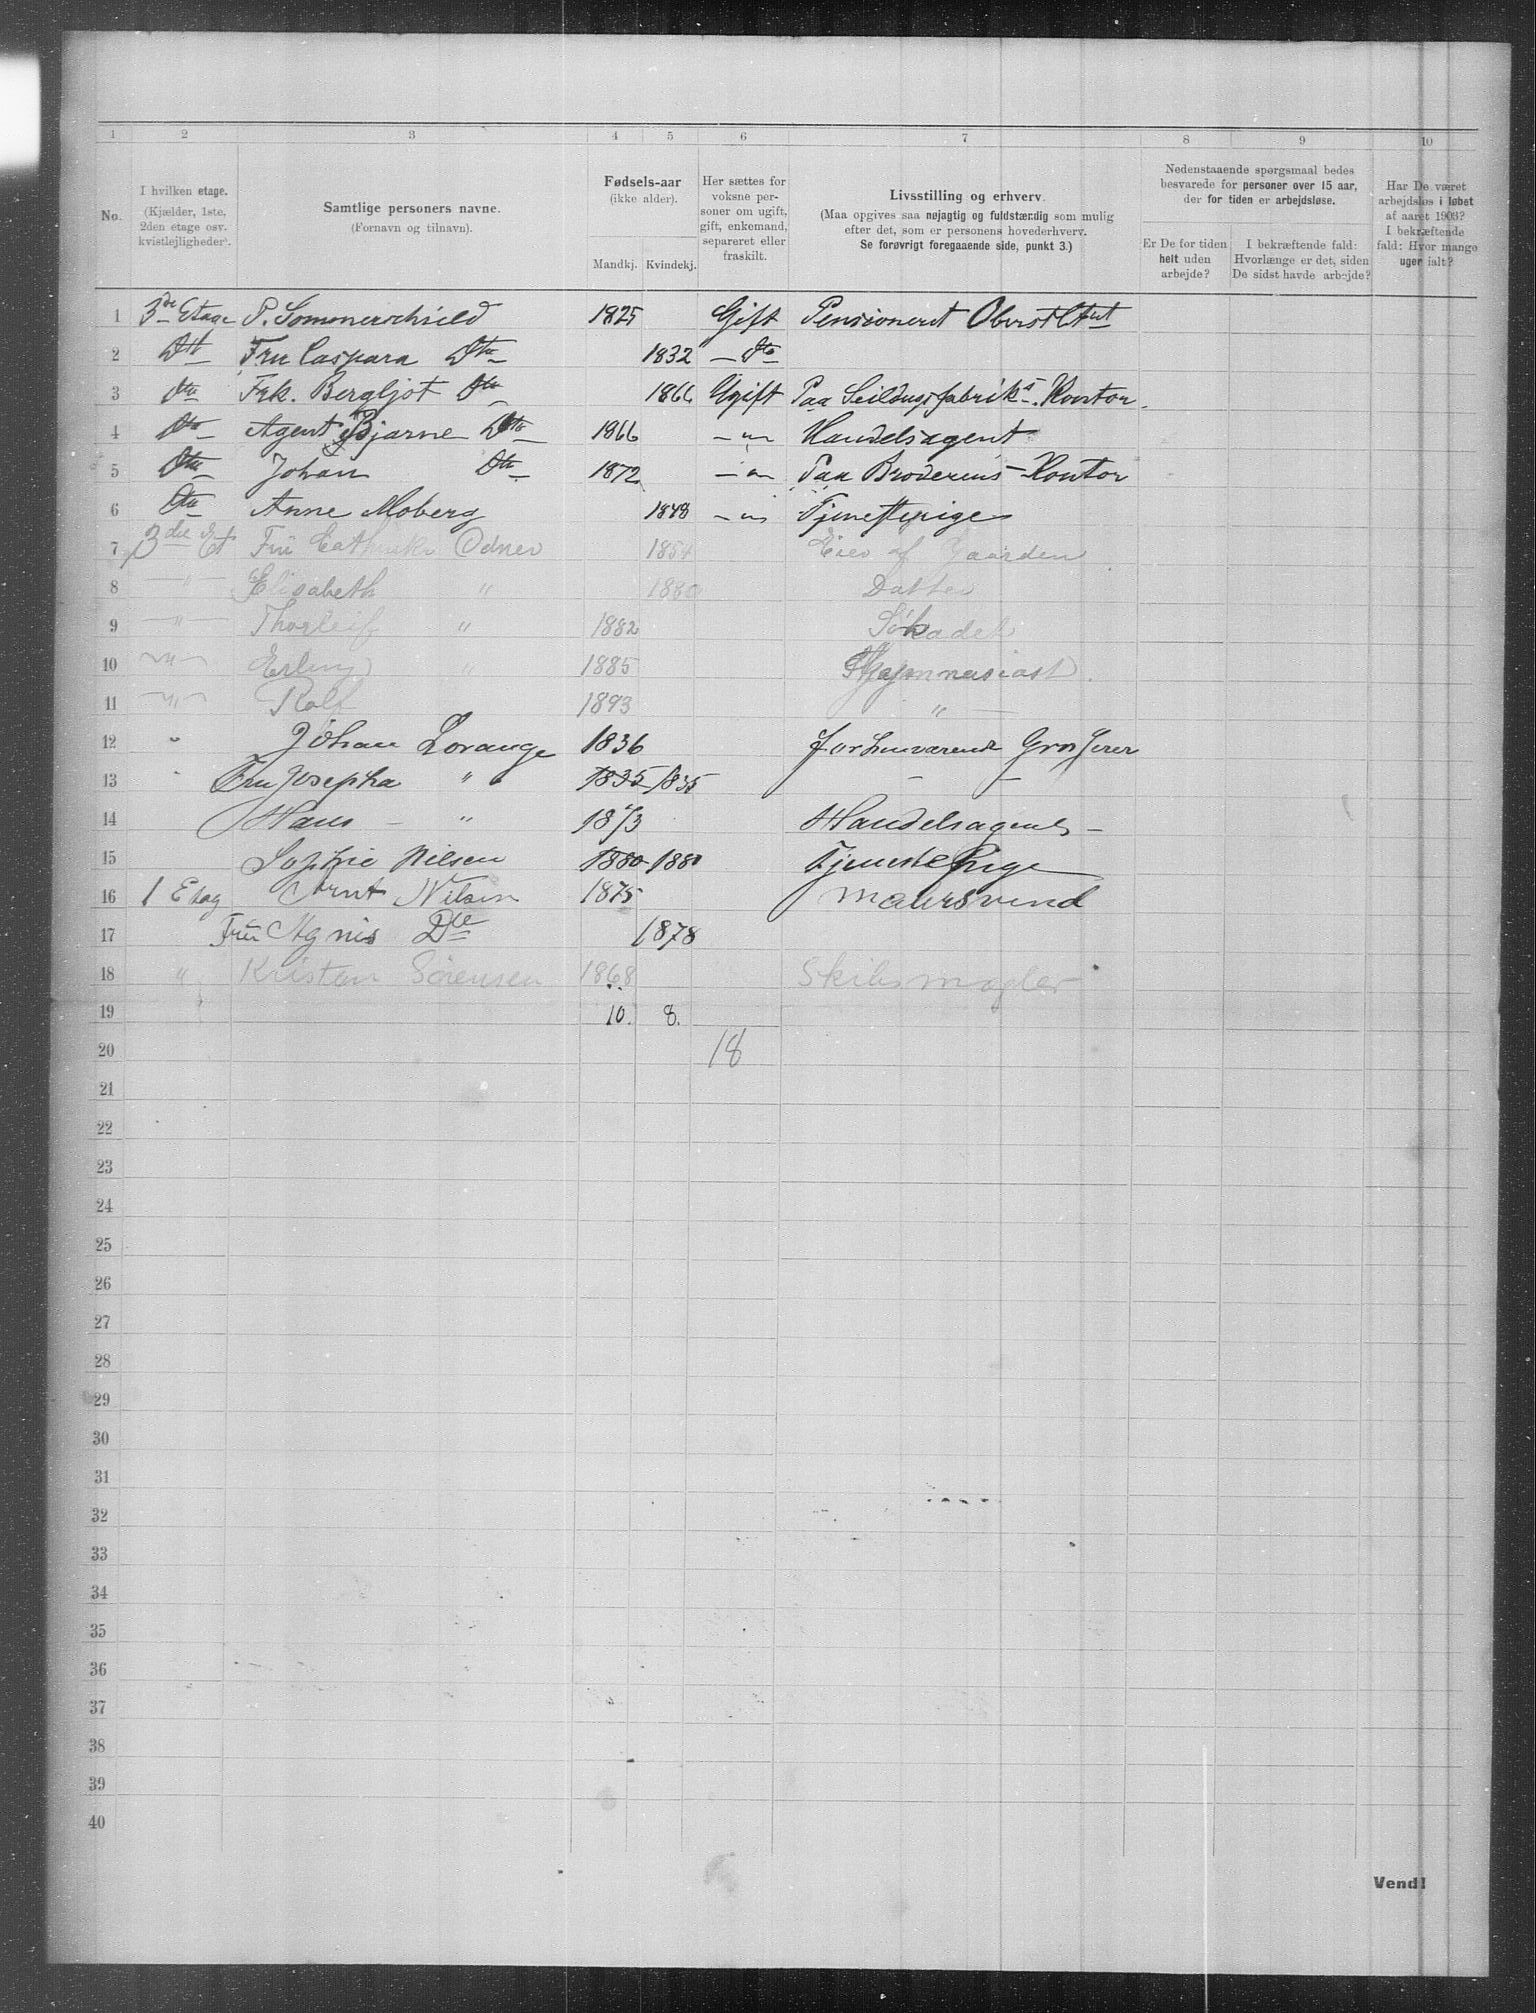 1 2 3 4 5 6 7 8 9 10
No.
I hvilken etage.
(Kjælder, 1ste, 2den etage osv. kvistlejligheder).
Samtlige personers navne.
(Fornavn og tilnavn).
Fødsels-aar
(ikke alder).
Mandkj. Kvindekj.
Her sættes for voksne personer om ugift, gift, enkemand, separeret eller fraskilt.
Livsstilling og erhverv.
(Maa opgives saa nøjagtig og fuldstændig som mulig efter det, som er personens hovederhverv.
Se forøvrigt foregaaende side, punkt 3.)
Nedenstaaende spørgsmaal bedes besvarede for personer over 15 aar, der for tiden er arbejdsløse.
Er De for tiden helt uden arbejde?
I bekræftende fald: Hvorlænge er det, siden De sidst havde arbejde?
Har De været arbejdsløs i løbet af aaret 1903? I bekræftende fald: Hvor mange uger ialt?
1 3de Etage P. Sommerschield 1825 Gift Pensioneret Oberstltnt
2 Dto Fru Caspara Dto 1832 – Dto
3 Dto Frk. Bergljot Dto 1866 Ugift Paa Seildugsfabriks Kontor
4 Dto Agent Bjarne Dto 1866 – " Handelsagent
5 Dto Johan Dto 1872 – " Paa Kontor
6 Dto Anne Moberg 1848 – " Tjenestepige
7 3die Et Fru Odner 1854 Eier af Gaarden
8 " Elisabeth " 1880 Datter
9 " Thorleif " 1882 Søkadet
10 " Erling " 1885 Gymnasiast
11 " Rolf 1893 "
12 " Johan Lorange 1836 forhenværende Grosserer
13 " Fru Josepha " 1835 1835 – –
14 Hans – " 1873 Handelsagent –
15 Sophie Nilsen 1880 1880 Tjenestepige
16 1 Etag Arnt Nilsen 1875 Malersvend
17 Fru Agnis Dto 1878
18 " Kristen Sörensen 1868 Skibsmægler
19 10. 8.
20 18
21
22
23
24
25
26
27
28
29
30
31
32
33
34
35
36
37
38
39
40
Vend!